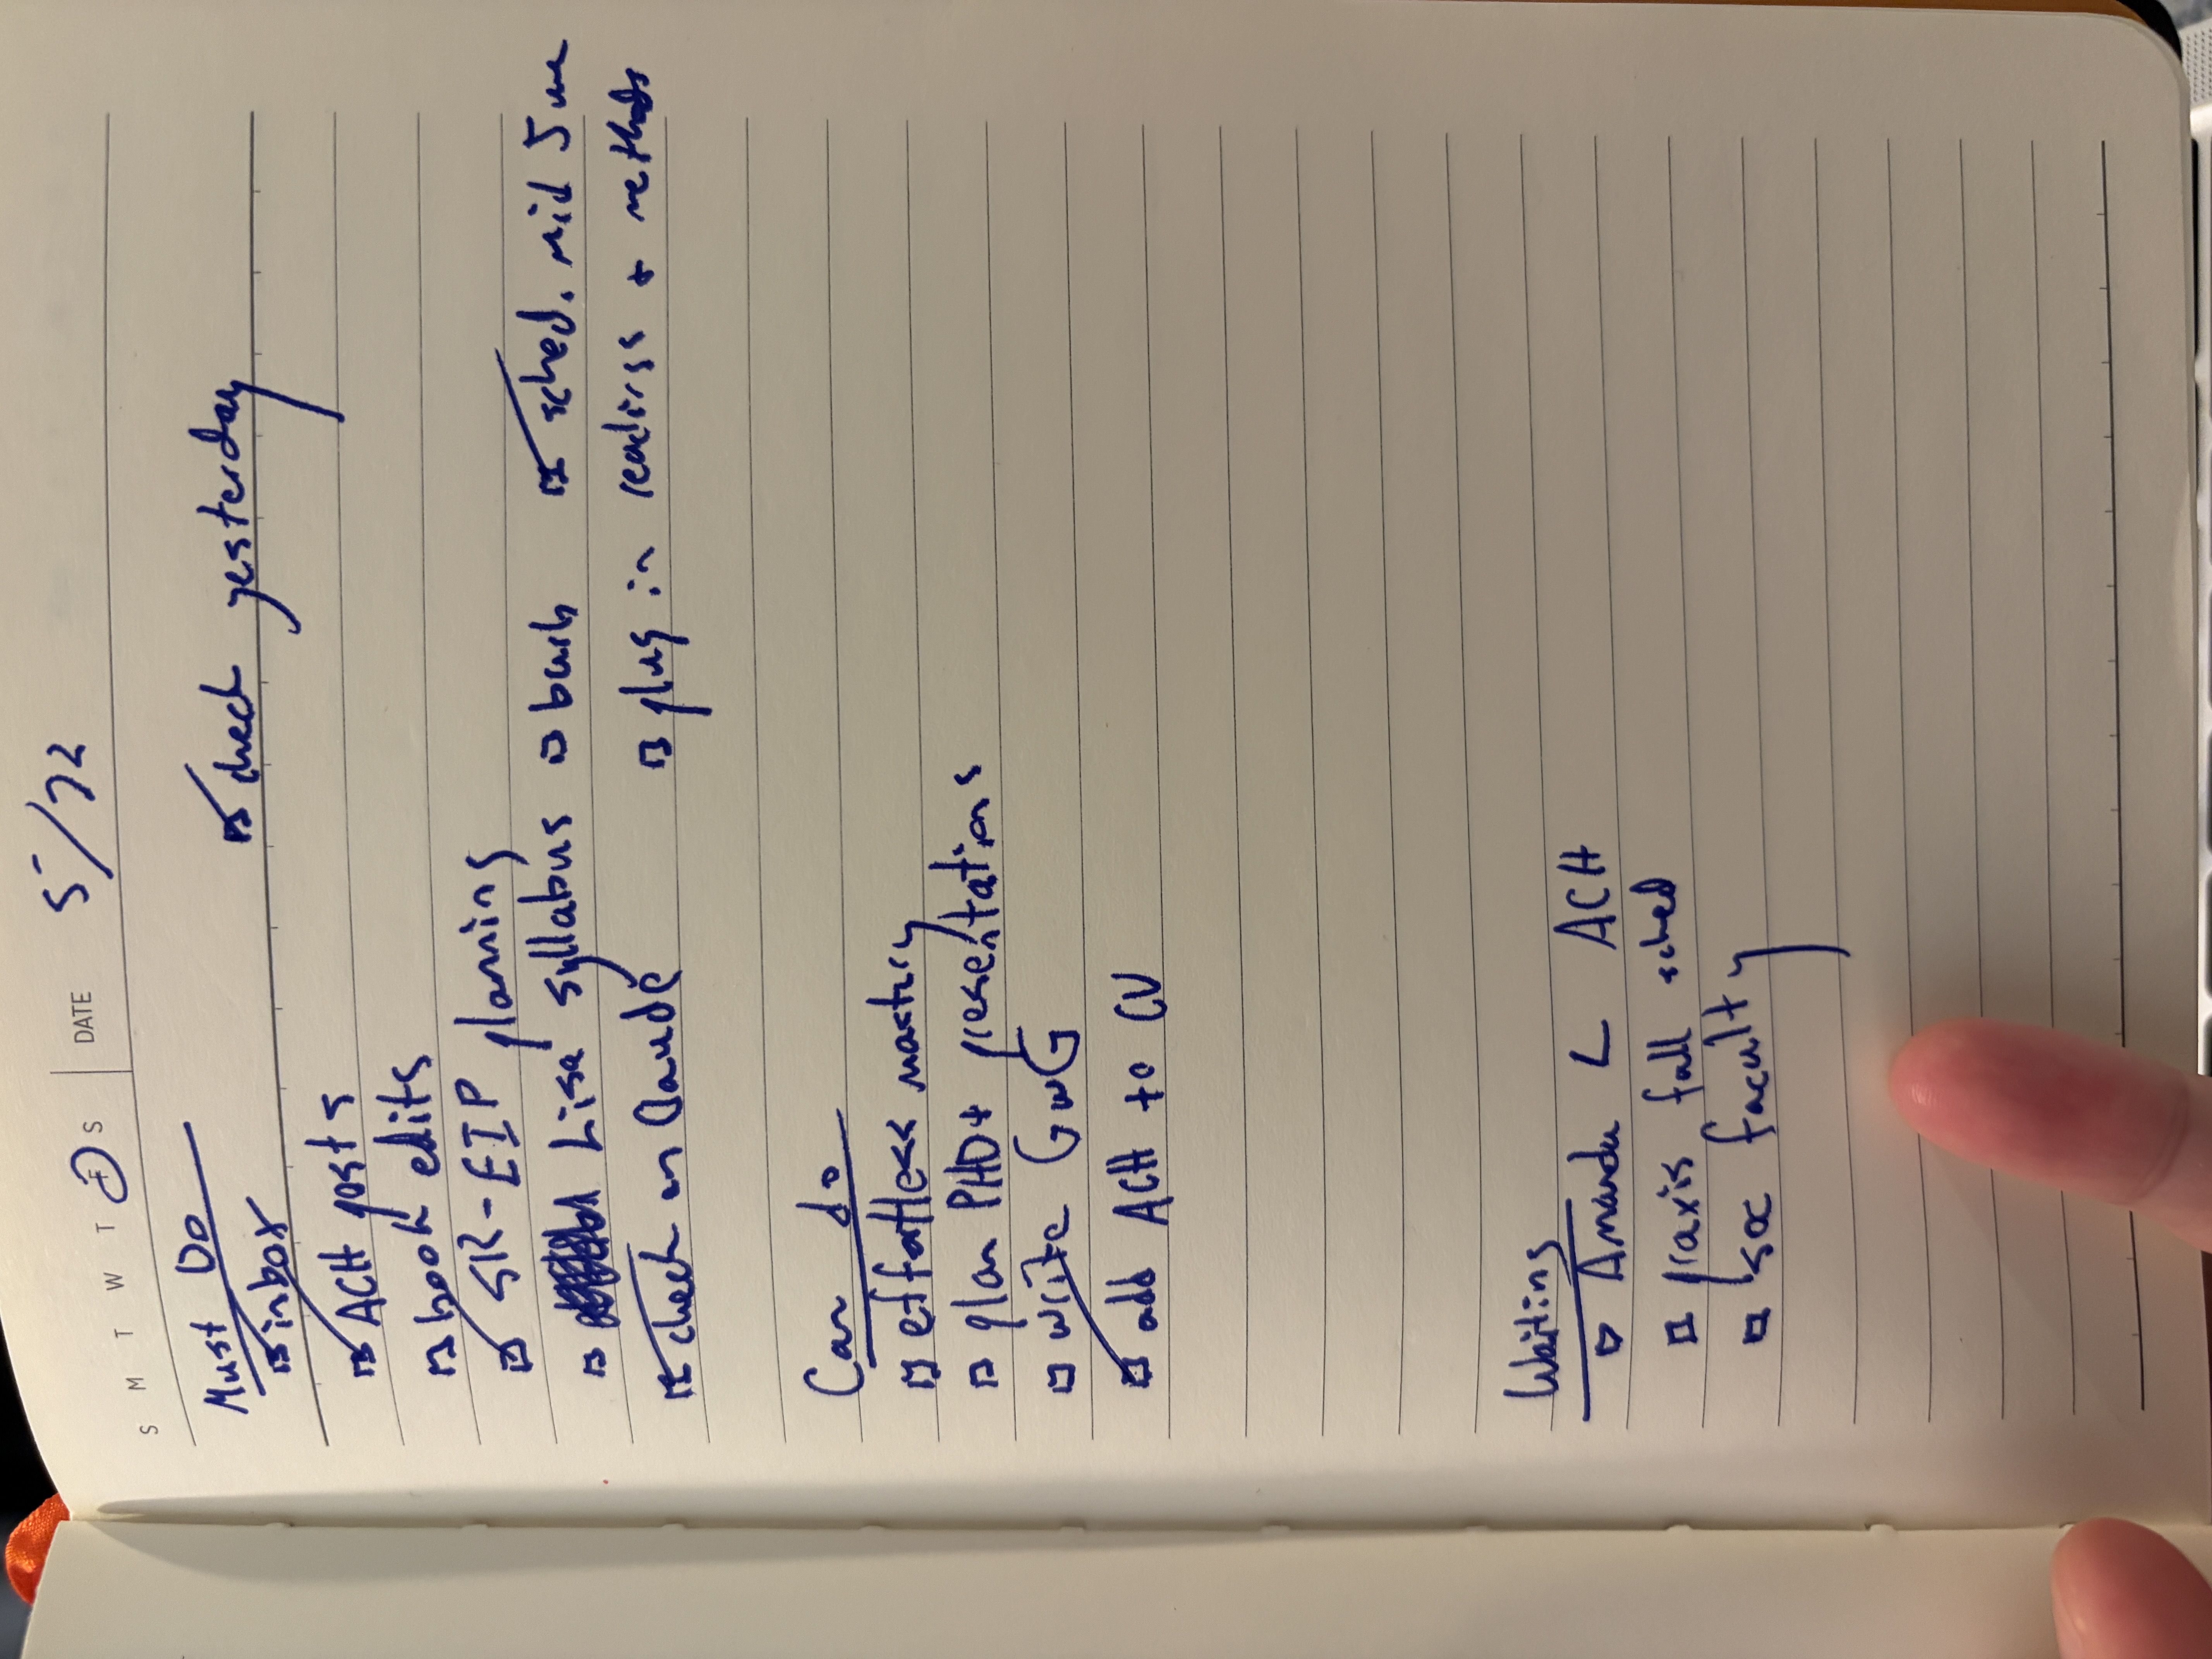 S M T W T F S DATE 5/22
Must Do
inbox check yesterday
ACH posts
book edits
SR-EIP planning
Lisa syllabus bush sched. mid 5
check on Claude plug in readings + methods
Can do
effortless mastery
plan PHD+ presentations
write GwG
add ACH to CV
Waiting
Amanda L ACH
praxis fall sched
faculty